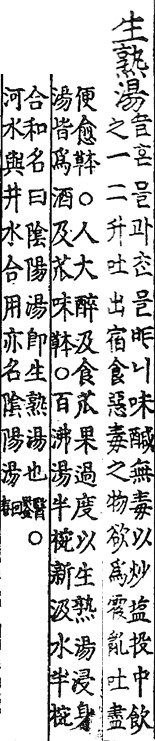 生熟湯ᄭᅳᆯ흔믈과ᄎᆞᆫ믈ᄩᆞ니味醎無毒以炒盐投中飮
之一二升吐出宿食惡毒之物欲爲霍亂吐盡
便愈本草○人大醉及食苽果過度以生熟湯浸身
湯皆爲酒及苽味本草○百沸湯半椀新汲水半椀
合和名曰陰陽湯即生熟湯也醫鑑○
河水與井水合用亦名陰陽湯回春